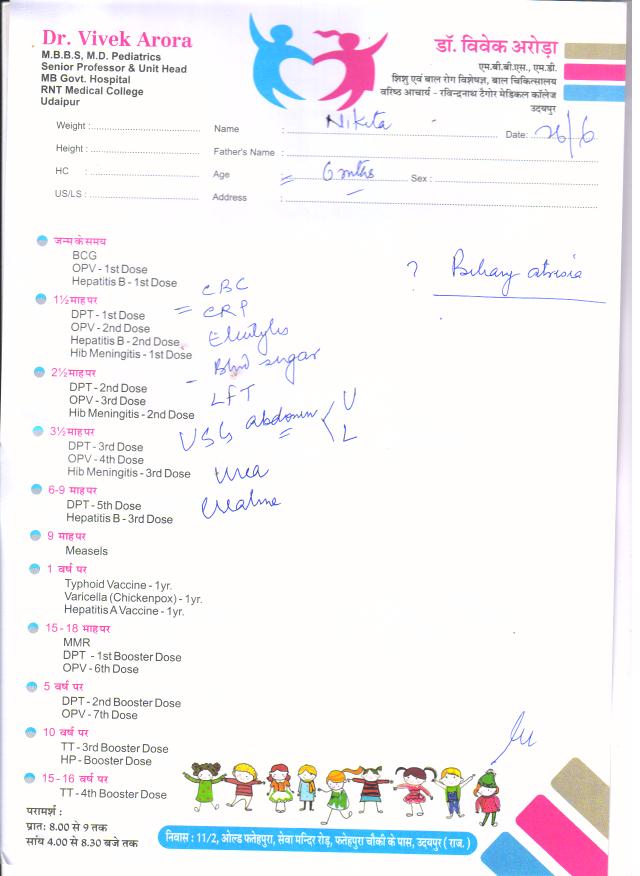 Dr. Vivek Arora
M.B.B.S, M.D. Pediatrics
Senior Professor & Unit Head
MB Govt. Hospital
RNT Medical College
Udaipur
डॉ. विवेक अरोड़ा
एम.बी.बी.एस., एम.डी.
शिशु एवं बाल रोग विशेषज्ञ, बाल चिकित्सालय
वरिष्ठ आचार्य - रविन्द्रनाथ टैगोर मेडिकल कॉलेज
उदयपुर
Weight : Name : Nikita Date: 26/6
Height : Father's Name :
HC : Age : 6 mths Sex :
US/LS : Address :
जन्म के समय
BCG
OPV - 1st Dose
Hepatitis B - 1st Dose
? Biliary atresia
CBC
1½ माह पर
DPT - 1st Dose
CRP
OPV - 2nd Dose
Hepatitis B - 2nd Dose
Hib Meningitis - 1st Dose
Blood sugar
2½ माह पर
DPT - 2nd Dose
OPV - 3rd Dose
LFT
Hib Meningitis - 2nd Dose
3½ माह पर
USG abdomen < U L
DPT - 3rd Dose
OPV - 4th Dose
Hib Meningitis - 3rd Dose
Urea
6-9 माह पर
DPT - 5th Dose
Hepatitis B - 3rd Dose
9 माह पर
Measels
1 वर्ष पर
Typhoid Vaccine - 1yr.
Varicella (Chickenpox) - 1yr.
Hepatitis A Vaccine - 1yr.
15 - 18 माह पर
MMR
DPT - 1st Booster Dose
OPV - 6th Dose
5 वर्ष पर
DPT - 2nd Booster Dose
OPV - 7th Dose
10 वर्ष पर
TT - 3rd Booster Dose
HP - Booster Dose
15-16 वर्ष पर
TT - 4th Booster Dose
परामर्श :
प्रातः 8.00 से 9 तक
सांय 4.00 से 8.30 बजे तक
निवास : 11/2, ओल्ड फतेहपुरा, सेवा मन्दिर रोड़, फतेहपुरा चौकी के पास, उदयपुर ( राज. )